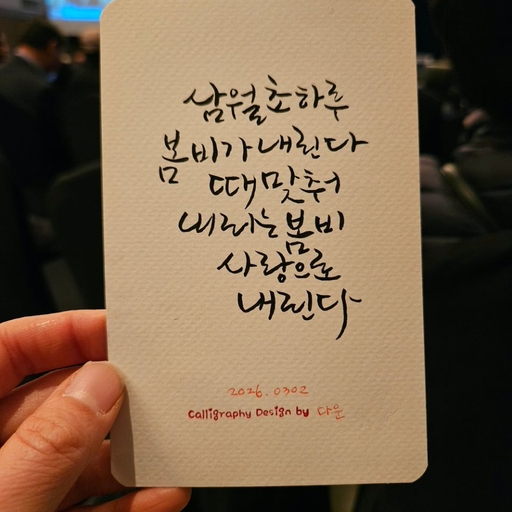 삼월 초하루
봄비가 내린다
때맞춰
내리는 봄비
사랑으로
내린다
2026. 0302
Calligraphy Design by 다운